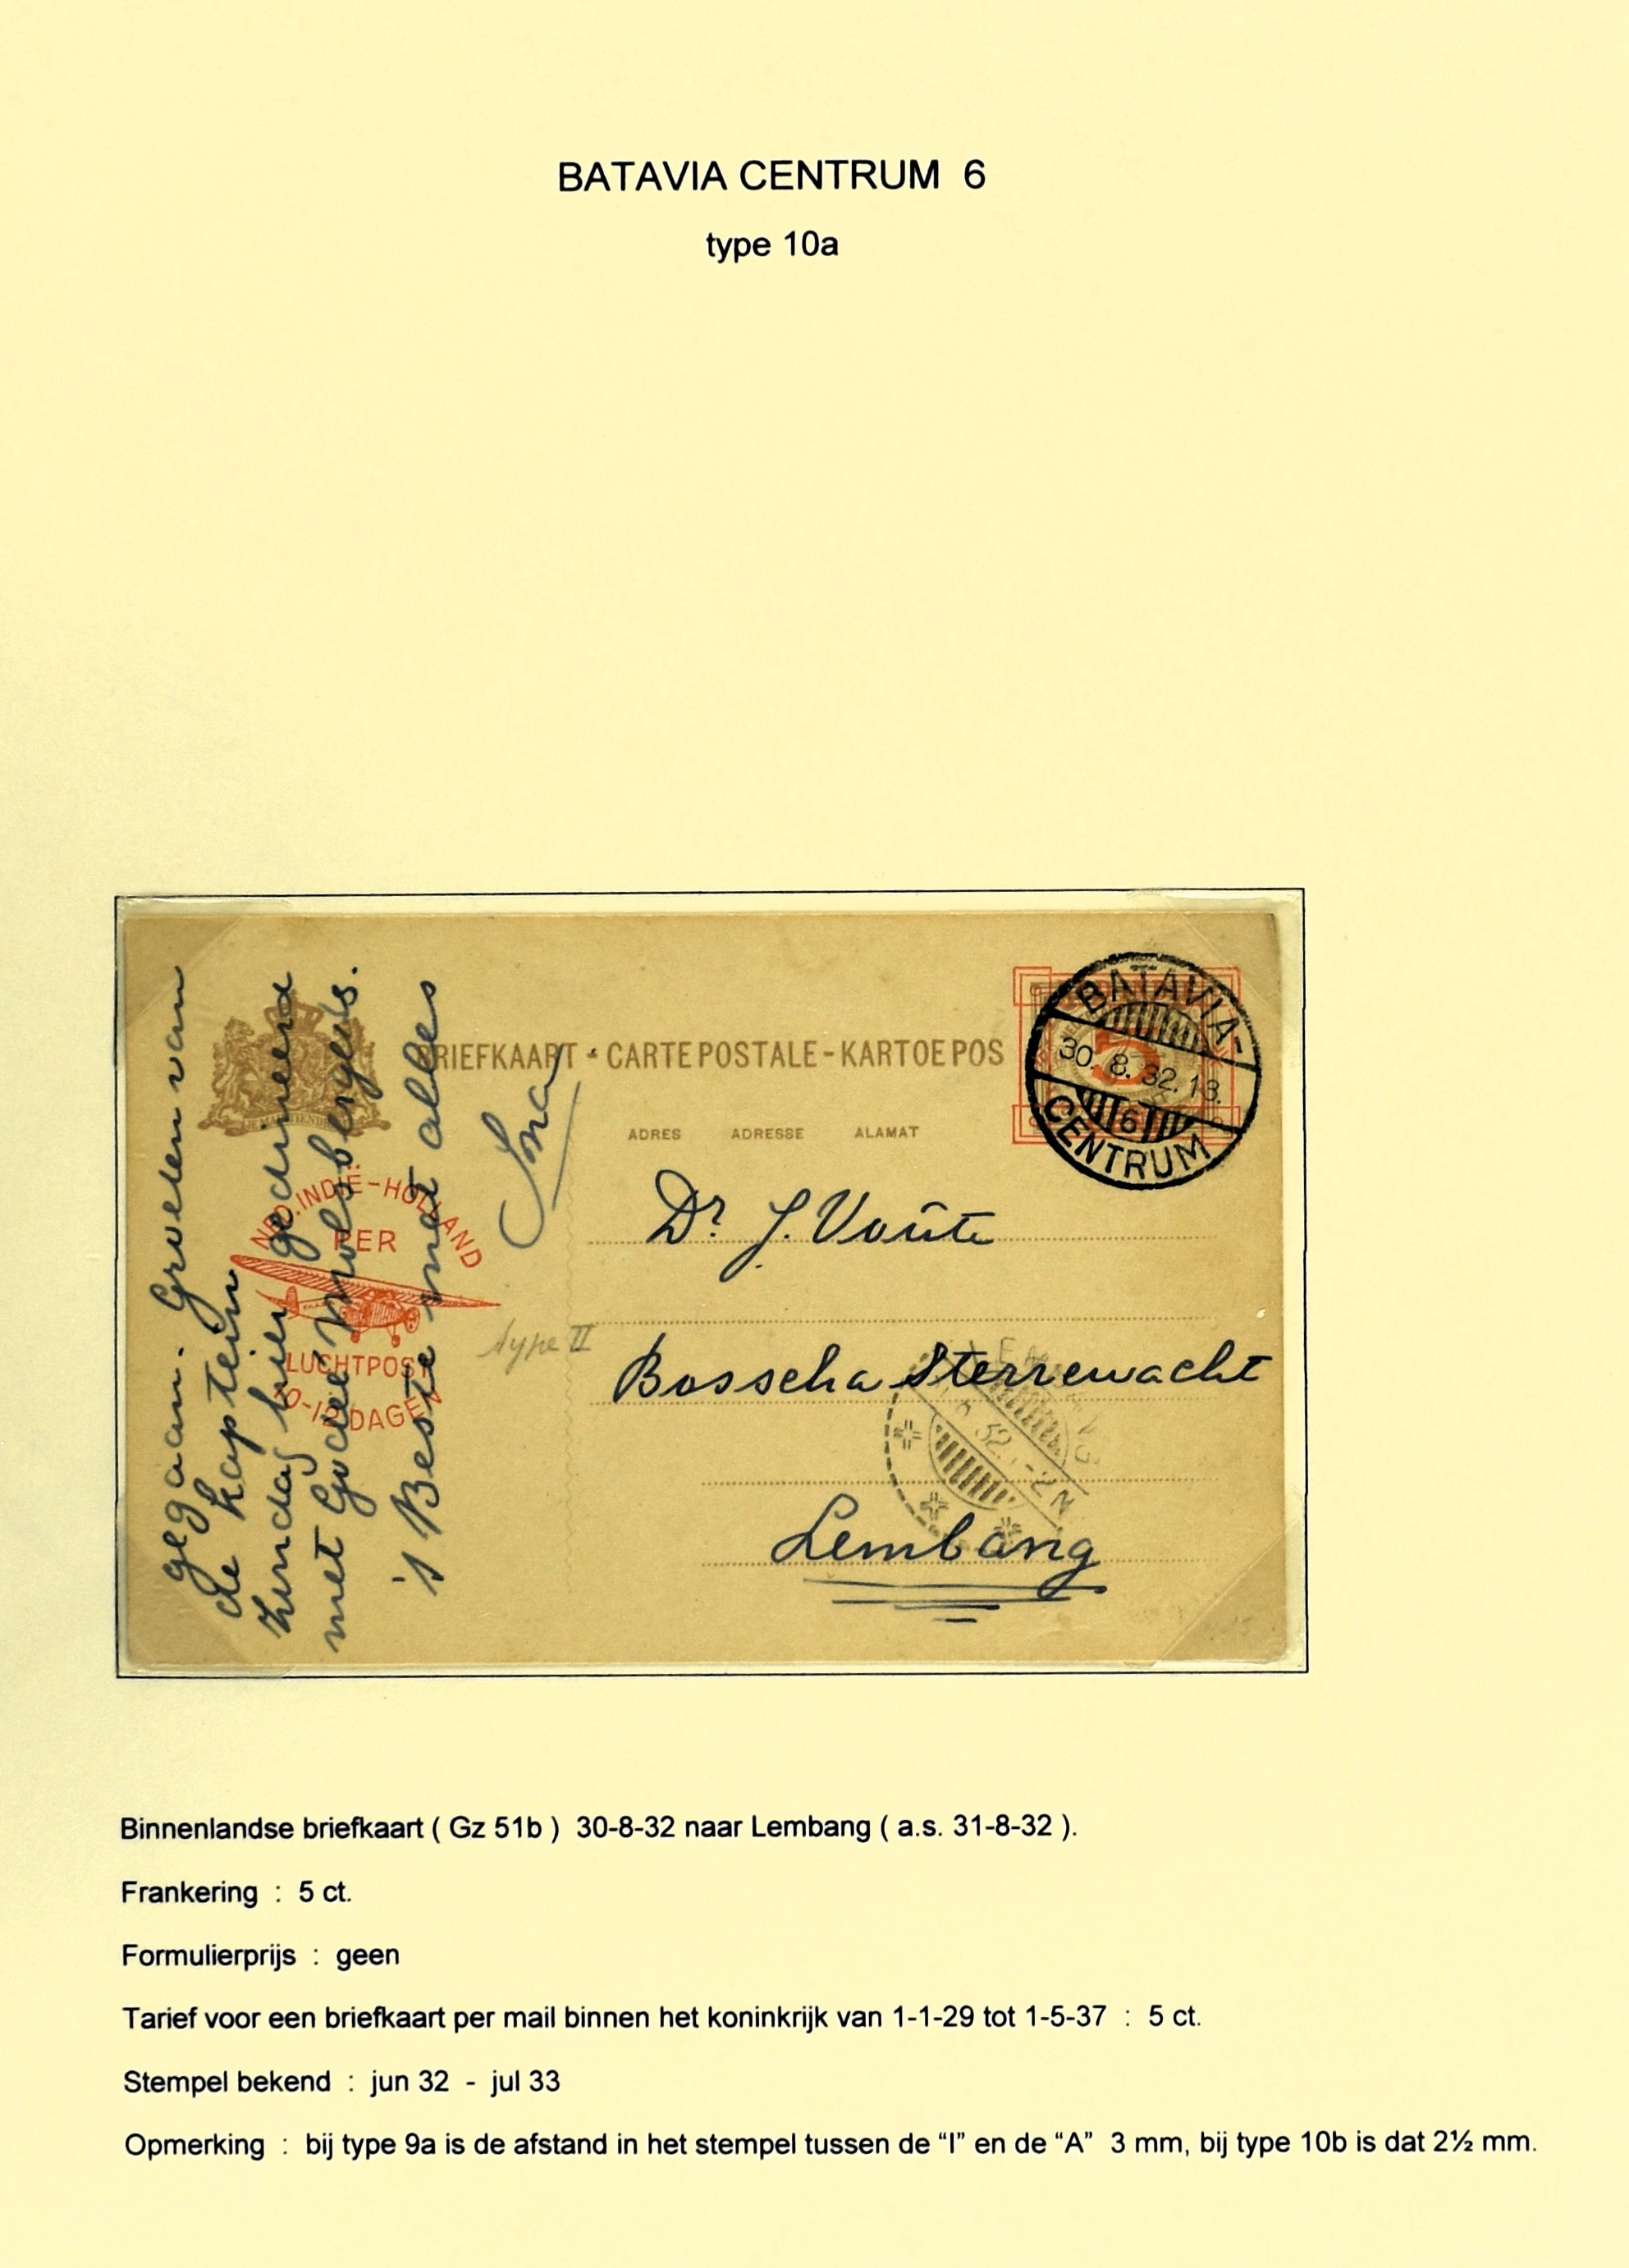 BATAVIA CENTRUM 6
type 10a
BRIEFKAART - CARTE POSTALE - KARTOE POS
ADRES ADRESSE ALAMAT
BATAVIA-
30.8.32.18.
6
CENTRUM
NED.INDIË-HOLLAND
PER
LUCHTPOST
10-12 DAGEN
gegaan. Groeten van
de kaptein
Zondag hier gedineerd
met
's Beste met alles
type II
Dr. J. Voûte
Bosscha Sterrewacht
Lembang
32.-2N
Binnenlandse briefkaart ( Gz 51b ) 30-8-32 naar Lembang ( a.s. 31-8-32 ).
Frankering : 5 ct.
Formulierprijs : geen
Tarief voor een briefkaart per mail binnen het koninkrijk van 1-1-29 tot 1-5-37 : 5 ct.
Stempel bekend : jun 32 - jul 33
Opmerking : bij type 9a is de afstand in het stempel tussen de “I” en de “A” 3 mm, bij type 10b is dat 2½ mm.